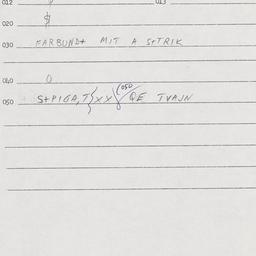 012
013
020 $
030 FARBUND+ MIT A S+TRIK
040 O
050 S+PIGA,T}XX} (050 QE TVAJN